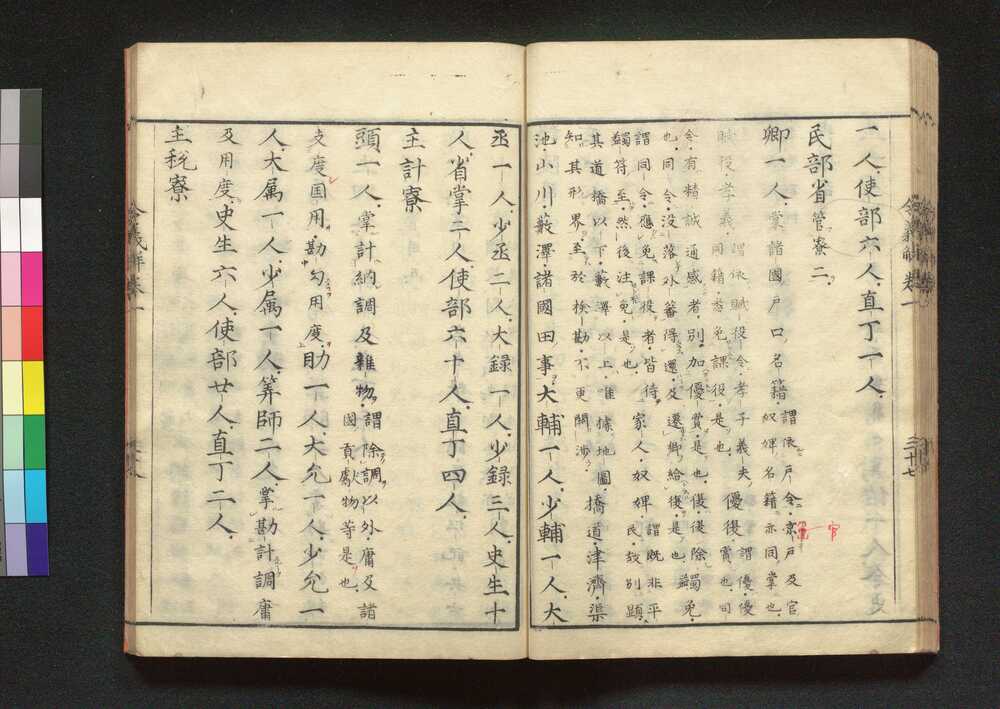 一人使部六人直丁一人
民部省管寮二
卿一人掌諸國戸口名籍謂依戸令京戸及官
奴婢名籍亦同掌也
賦役孝義謂依賦役令孝子義夫
同籍悉免課役是也優復謂優優
賞也司
令有精誠通感者別加優賞是也復復除蠲免
也同令没落外蕃得還及遷郷給復是也
謂同令應免課役者皆待
蠲符至然後注免是也家人奴婢謂既非平
民故別顕
其道橋以下藪澤以上唯據地圖橋道津濟渠
知其形界至於検勘不更関渉
池山川藪澤諸國田事大輔一人少輔一人大
丞一人少丞二人大録一人少録三人史生十
人省掌二人使部六十人直丁四人
主計寮
頭一人掌計納調及雜物謂除調以外庸及諸
國貢献物等是也
支度国用勘勾用度助一人大允一人少允一
人大属一人少属一人筭師二人掌勘計調庸
及用度史生六人使部廿人直丁二人
主税寮
令義解巻一
三十七
官